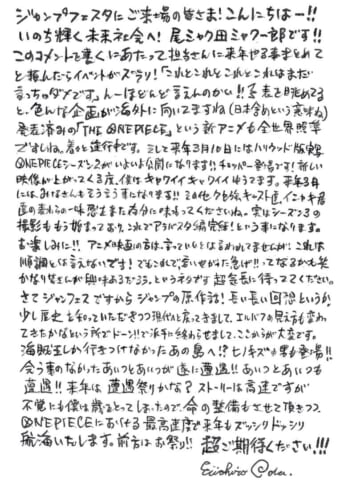 ジャンプフェスタにご来場の皆さま!こんにちはー!!
いのち輝く未来社会へ!尾ミャク田ミャク一郎です!!
このコメントを書くにあたって担当さんに来年やる事まとめて
と頼んだらイベントがズラリ!「これとこれとこれとこれはまだ
言っちゃダメです」んーほとんど言えんのかい!!予表を眺めてる
と、色んな企画が海外に向いてますね(日本含めという意味ね)
発表済みの「THE ONE PIECE」という新アニメも全世界照準
ですしね。着々と進行中です。そして来年3月10日にはハリウッド版実写
ONE PIECEシーズン2がいよいよ公開になります!!チョッパー登場です!新しい
映像が上がってくる度、僕はキャワイイキャワイイゆうてます。来年3月
には、みなさんもそう言う事になります!!
撮影ももう始まっており、これでアラバスタ編完結!という事になります。
お楽しみに!!アニメ映画の方は、言っていいとは言われてませんが、これは
順調とは言えないです!でもこれで、
かなり皆さんが興味あるだろう、というネタです超気長に待っててください。
さてジャンプフェスですからジャンプの原作話!長い長い回想というか、
少し歴史を知っていただきつつ現代へと戻ってきまして、エルバフの見え方も変わっ
てきたかなという所でドーン!!で派手に終わらせまして、ここからが大変です。
海賊王しか行きつけなかったあの島へ!?ヒノキズの男も登場!!
会う事のなかったあいつとあいつが遂に遭遇!!あいつとあいつも
遭遇!!来年は遭遇祭りかな?ストーリーは高速ですが
不覚にも僕は歳をとってしまったので、命の整備もさせて頂きつつ
ONE PIECEにおける最高速度で来年もズッシンドッシリ
航海いたします。前方はお祭り!!超ご期待ください!!!
Eiichiro Oda.